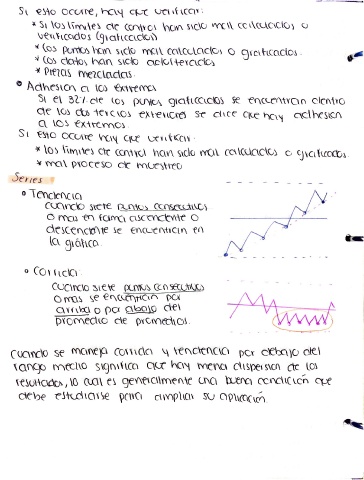 Si esto ocurre, hay que verificar:
* Si los límites de control han sido mal calculados o
verificados (graficados)
* los puntos han sido mal calculados o graficados.
* los datos han sido adulterados
* Piezas mezcladas.
• Adhesion a los extremos
Si el 32% de los puntos graficados se encuentran dentro
de los dos tercios exteriores se dice que hay adhesion
a los extremos.
Si esto ocurre hay que verificar:
* los límites de control han sido mal calculados o graficados.
* mal proceso de muestreo
Series
• Tendencia
cuando siete puntos consecutivos
o mas en forma ascendente o
descendente se encuentran en
la gráfica.
• Corrida:
cuando siete puntos consecutivos
o mas se encuentran por
arriba o por abajo del
promedio de promedios.
cuando se maneja corrida y tendencia por debajo del
rango medio significa que hay mena dispersion de los
resultados, lo cual es generalmente una buena condición que
debe estudiarse para ampliar su aplicación.